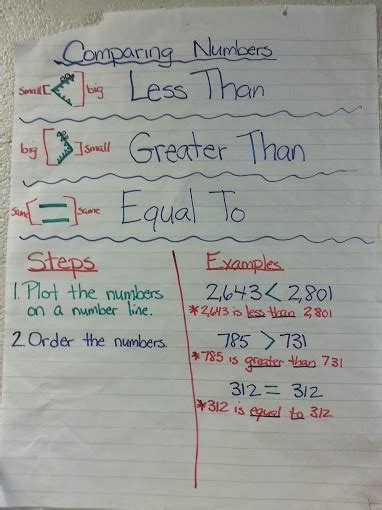 Comparing Numbers
small [<] big Less Than
big [>] small Greater Than
same [=] same Equal To
Steps
1. Plot the numbers
on a number line.
2. Order the numbers.
Examples
2,643 < 2,801
*2,643 is less than 2,801
785 > 731
*785 is greater than 731
312 = 312
*312 is equal to 312